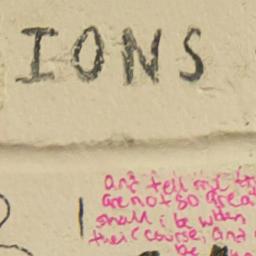 IONS
and tell me
are not so grea
small i be
their course, and
be